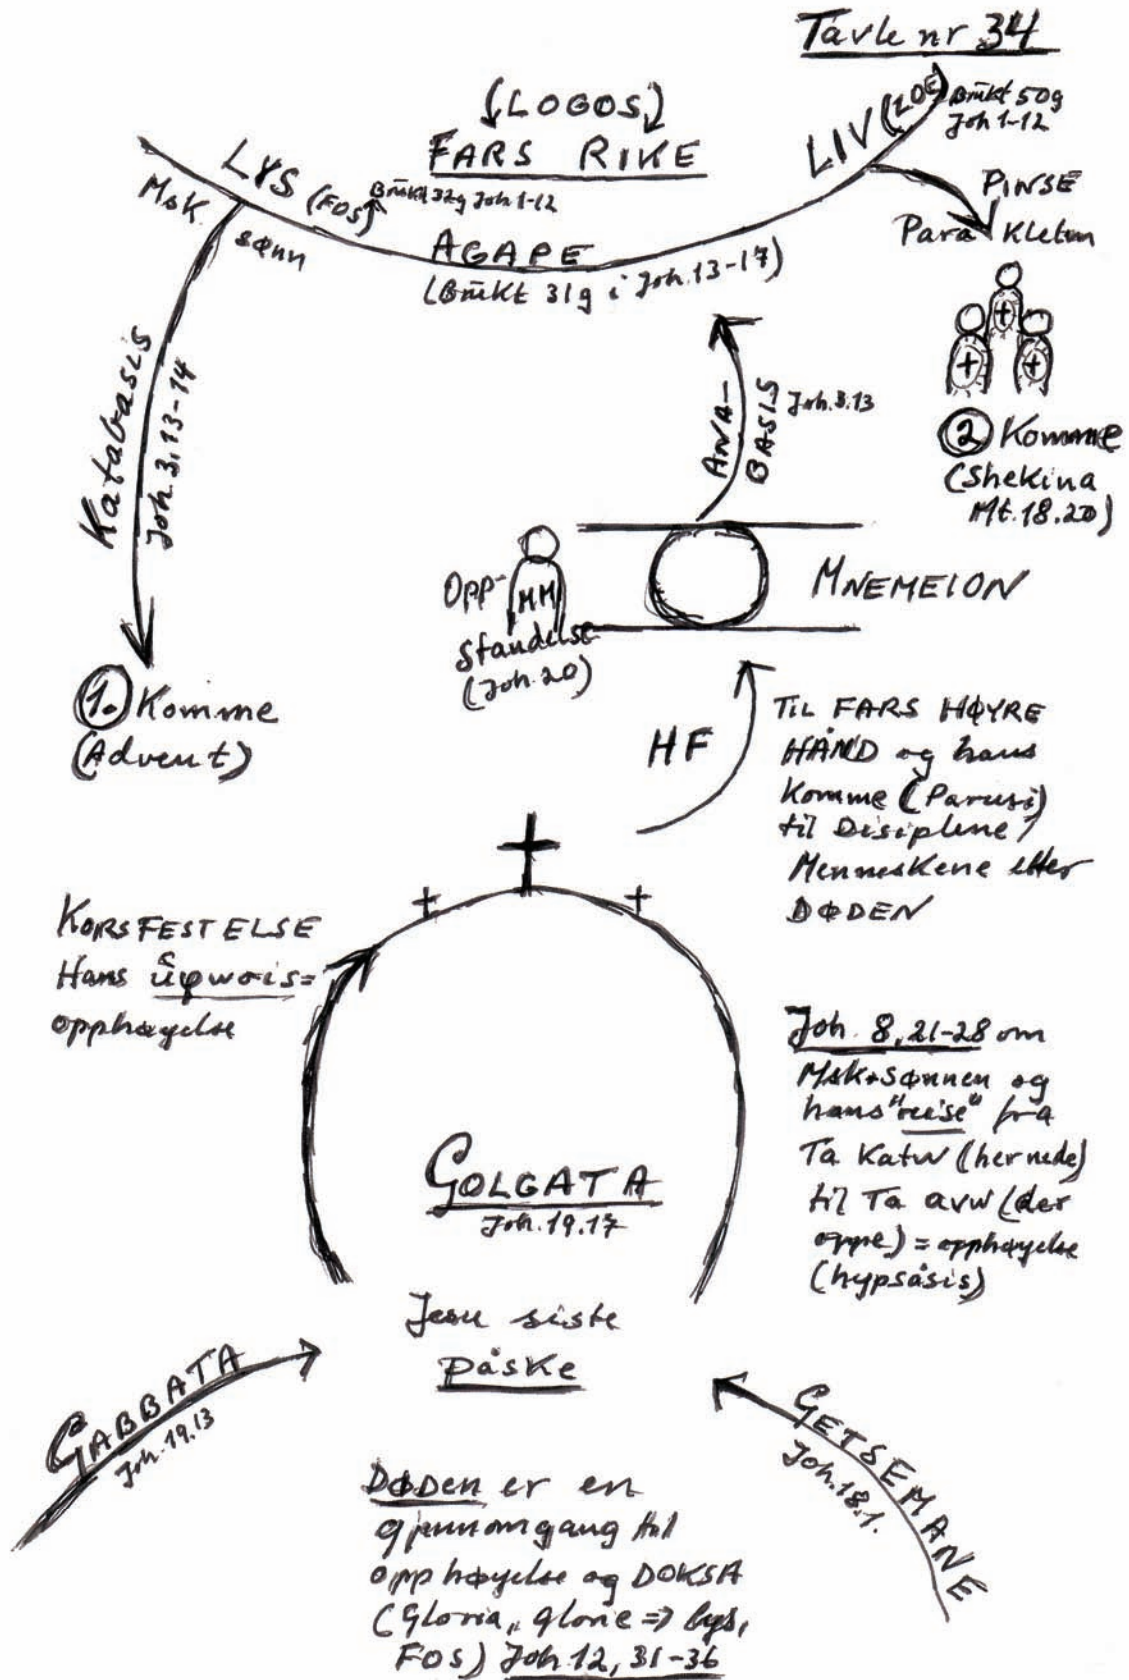 Tavle nr 34
(LOGOS)
FARS RIKE
LIV (ZOE)
Brukt 50g
Joh 1-12
LYS (FOS)
Brukt 32g Joh 1-12
Msk.
sønn
AGAPE
(Brukt 31g i Joh. 13-17)
PINSE
Para Kleten
Katabasis
Joh. 3, 13-14
ANA-
BASIS
Joh. 3.13
2 Komme
(Shekina
Mt. 18.20)
Opp-
MM
standelse
(Joh. 20)
MNEMEION
1. Komme
(Advent)
HF
TIL FARS HØYRE
HÅND og hans
Komme (Parusi)
til Disiplene/
Menneskene etter
DØDEN
KORSFESTELSE
Hans ὕψωσις=
opphøyelse
Joh. 8, 21-28 om
Msk.sønnen og
hans "reise" fra
Ta Katw (her nede)
til Ta avw (der
oppe) = opphøyelse
(hypsåsis)
GOLGATA
Joh. 19.17
Jesu siste
påske
GABBATA
Joh. 19.13
GETSEMANE
Joh. 18.1.
DØDEN er en
gjennomgang til
opphøyelse og DOKSA
(Gloria, glorie => lys,
FOS) Joh. 12, 31-36